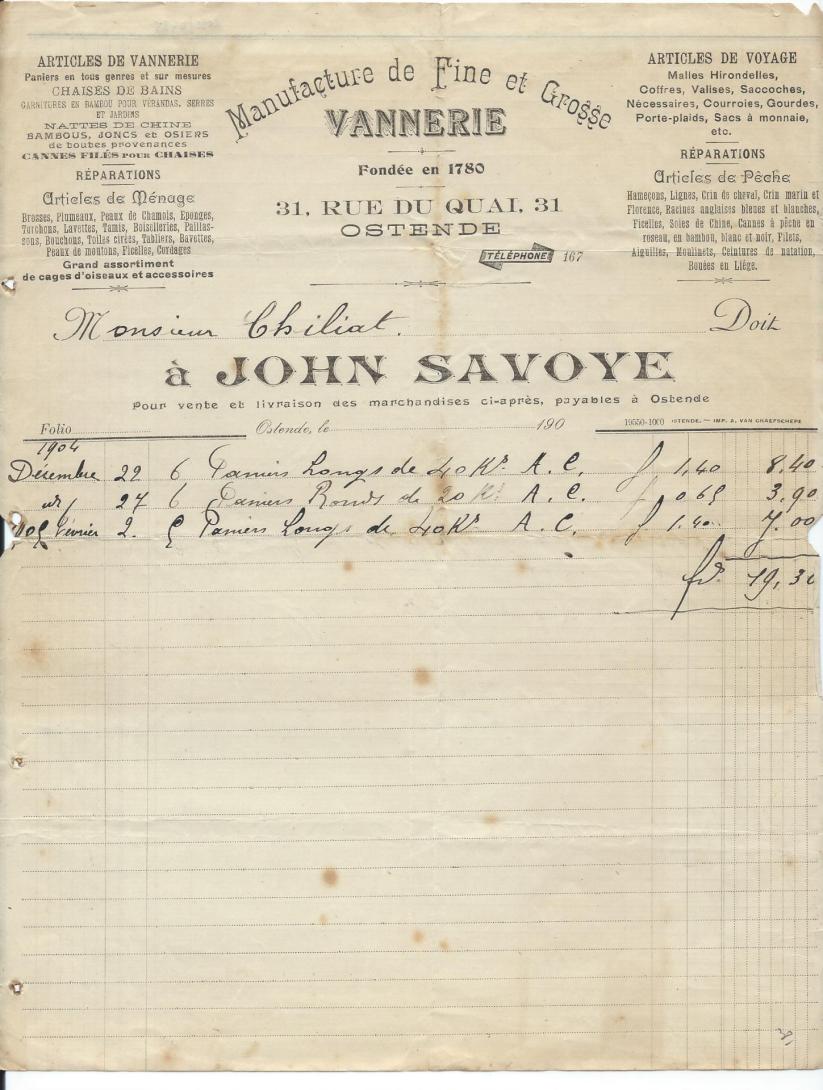 ARTICLES DE VANNERIE
Paniers en tous genres et sur mesures
CHAISES DE BAINS
GARNITURES EN BAMBOU POUR VÉRANDAS, SERRES
ET JARDINS
NATTES DE CHINE
BAMBOUS, JONCS et OSIERS
de toutes provenances
CANNES FILÉS POUR CHAISES
RÉPARATIONS
Articles de Ménage
Brosses, Plumeaux, Peaux de Chamois, Eponges,
Torchons, Lavettes, Tamis, Boiselleries, Paillas-
sons, Bouchons, Toiles cirées, Tabliers, Bavettes,
Peaux de moutons, Ficelles, Cordages
Grand assortiment
de cages d'oiseaux et accessoires
Manufacture de Fine et Grosse
VANNERIE
Fondée en 1780
31, RUE DU QUAI, 31
OSTENDE
TÉLÉPHONE 167
ARTICLES DE VOYAGE
Malles Hirondelles,
Coffres, Valises, Saccoches,
Nécessaires, Courroies, Gourdes,
Porte-plaids, Sacs à monnaie,
etc.
RÉPARATIONS
Articles de Pêche
Hameçons, Lignes, Crin de cheval, Crin marin et
Florence, Racines anglaises bleues et blanches,
Ficelles, Soies de Chine, Cannes à pêche en
roseau, en bambou, blanc et noir, Filets,
Aiguilles, Moulinets, Ceintures de natation,
Bouées en Liége.
Monsieur Chiliat. Doit
à JOHN SAVOYE
Pour vente et livraison des marchandises ci-après, payables à Ostende
Folio Ostende, le 190 19550-1000 OSTENDE. — IMP. A. VAN GRAEFSCHEPE
1904
Décembre 22 6 Paniers Longs de 40 K° A. C. f 1,40 8.40
27 6 Paniers Ronds de 20 K° A. C. f 0 65 3,90
Février 2. 5 Paniers Longs de 40 K° A. C. f 1.40 7.00
19,30